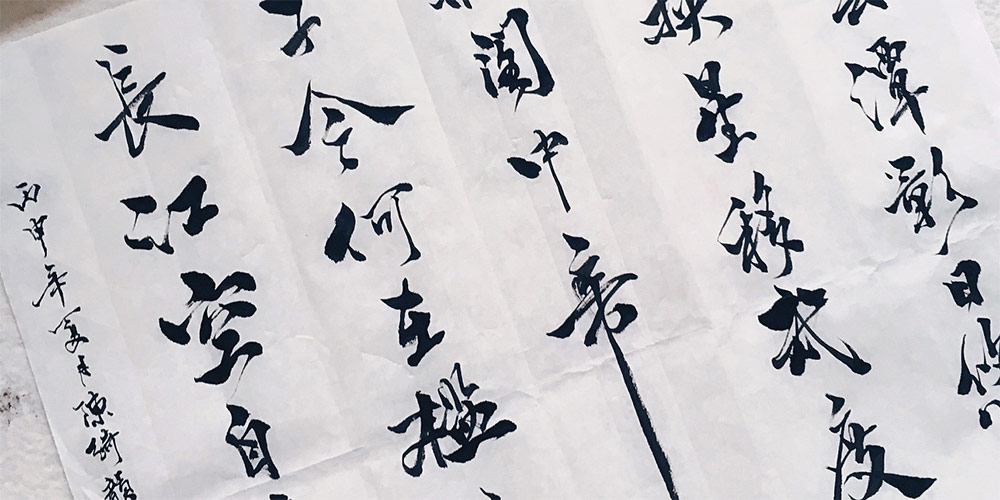 潭影日悠
換星移幾度
閣中帝
子今何在檻
長江空自
丙申年夏月陳綺